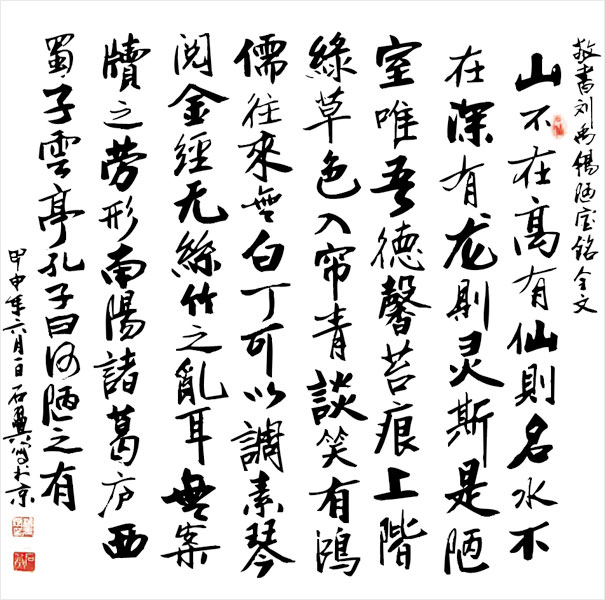 敬書刘禹錫陋室銘全文
山不在高有仙則名水不
在深有龙則灵斯是陋
室唯吾德馨苔痕上階
綠草色入帘青談笑有鴻
儒往來無白丁可以調素琴
閲金經无絲竹之亂耳無案
牘之劳形南陽諸葛庐西
蜀子雲亭孔子曰何陋之有
甲申年六月一日石於京